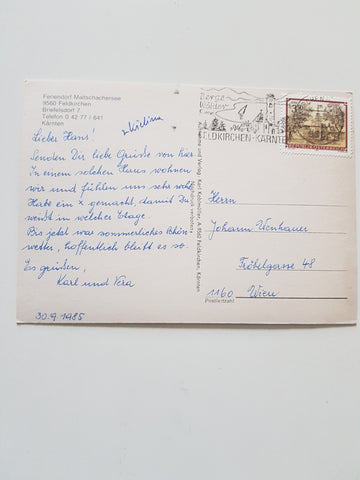 Feriendorf Maltschachersee
9560 Feldkirchen
Briefelsdorf 7
Telefon 0 42 77 / 641
Kärnten
Lieber Hans!
Senden Dir liebe Grüsse von hier.
In einem solchen Haus wohnen
wir und fühlen uns sehr wohl
Habe ein x gemacht, damit Du
weißt in welcher Etage.
Bis jetzt war sommerliches Schön-
wetter, hoffentlich bleibt es so.
Es grüssen,
Karl und Vera
30.9.1985
Berge
Wälder
FELDKIRCHEN-KÄRNTEN
REPUBLIK ÖSTERREICH
Herrn
Johann Wenhauer
Fröbelgasse 48
1160 Wien
Postleitzahl